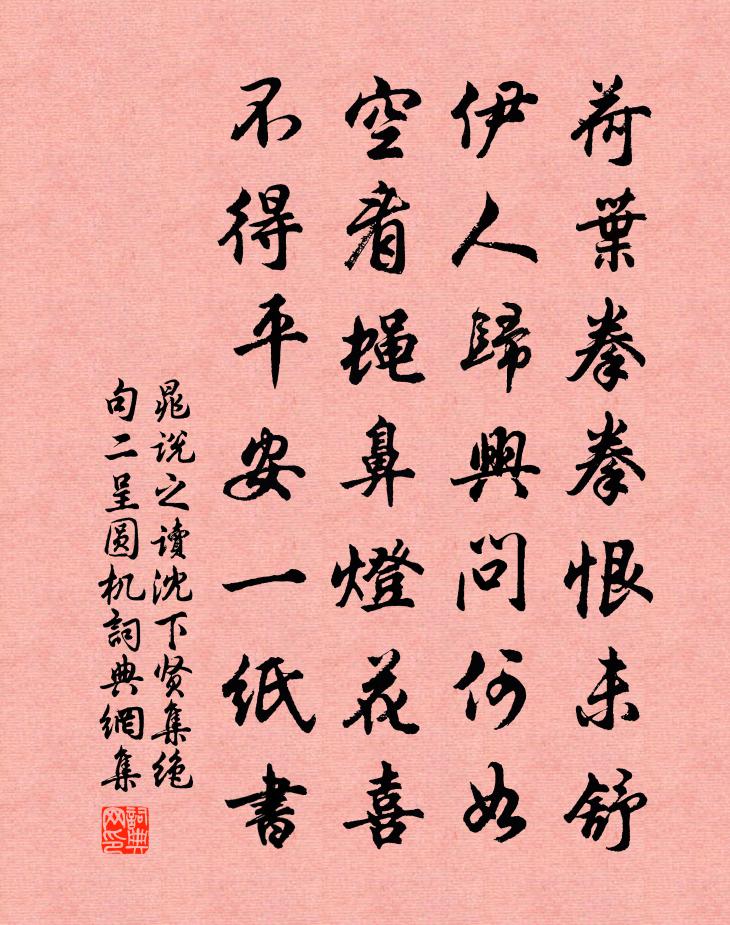 荷葉拳拳恨未舒
伊人歸興問何如
空看蝇鼻燈花喜
不得平安一纸書
晁说之讀沈下贤集绝
句二呈圆机詞典網集
詞典网印